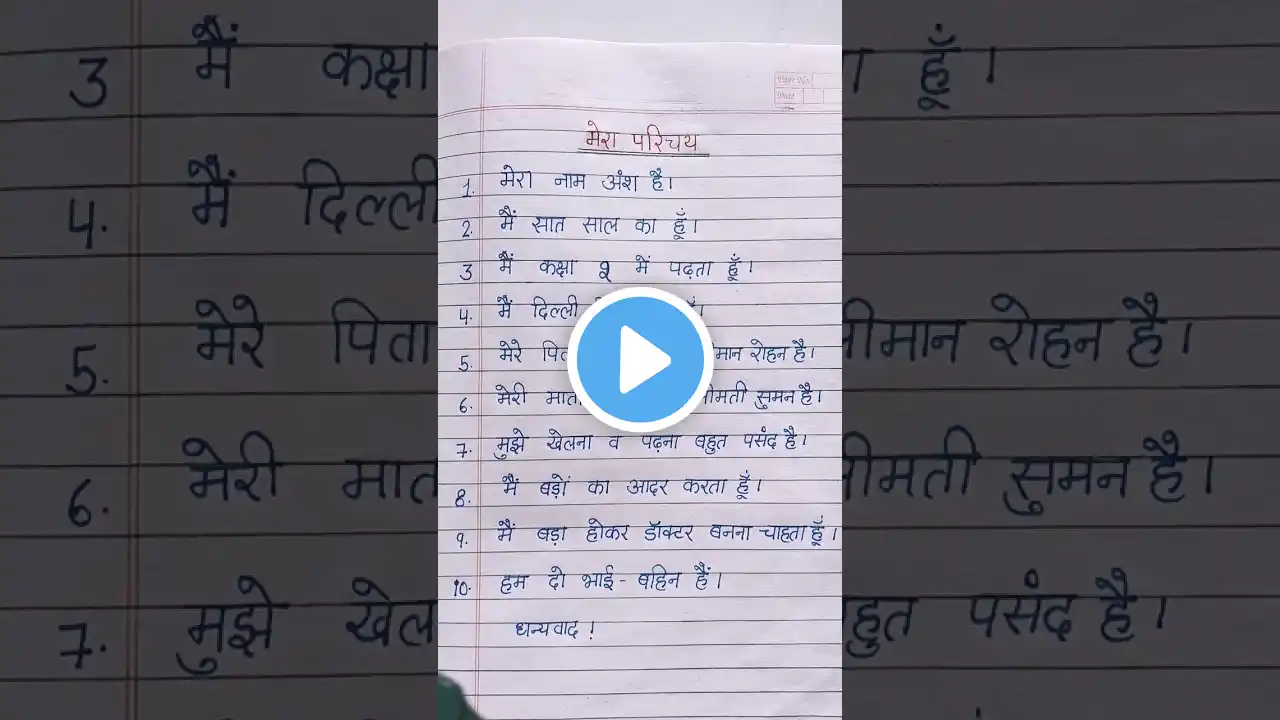 मेरा परिचय
1. मेरा नाम अंश है।
2. मैं सात साल का हूँ।
3 मैं कक्षा २ में पढ़ता हूँ।
4. मैं दिल्ली
5. मेरे रोहन है।
6. मेरी सुमन है।
7. मुझे खेलना व पढ़ना बहुत पसंद है।
8. मैं बड़ों का आदर करता हूँ।
9. मैं बड़ा होकर डॉक्टर बनना चाहता हूँ।
10. हम दो भाई-बहिन हैं।
धन्यवाद !